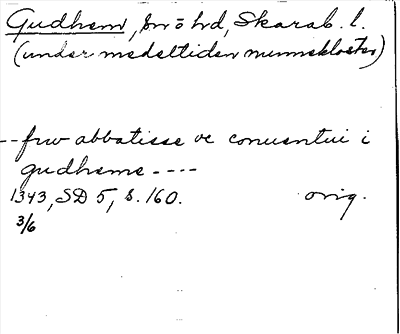 Gudhem, sn ö hd, Skarab. l.
(under medeltiden nunnekloster)
-- frw abbatisse oc conuentui i
gudheme ----
1343, SD 5, s. 160. orig.
3/6